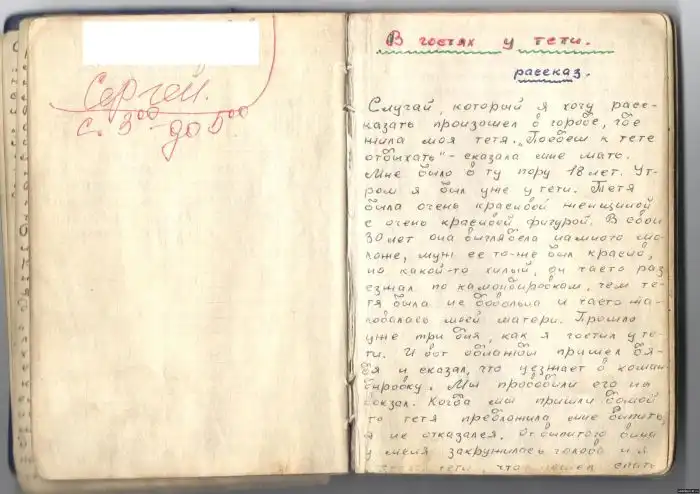 Сергей.
с. 3⁰⁰ до 5⁰⁰
В гостях у тети.
рассказ.
Случай, который я хочу расс-
казать произошел в городе, где
жила моя тетя. „Поедеш к тете
отдыхать" – сказала мне мать.
Мне было в ту пору 18 лет. Ут-
ром я был уже у тети. Тетя
была очень красивой женщиной
с очень красивой фигурой. В свои
30 лет она выглядела намного мо-
ложе, муж ее то-же был красив,
но какой-то хилый, он часто раз
езжал по командировкам, чем те-
тя была не довольна и часто жа-
ловалась моей матери. Прошло
уже три дня, как я гостил у те-
ти. И вот однажды пришел дя-
дя и сказал, что уезжает в коман
дировку. Мы проводили его на
вокзал. Когда мы пришли домой
то тетя предложила мне выпить,
я не отказался. От выпитого вина
у меня закружилась голова и я
тети, что пошел спать